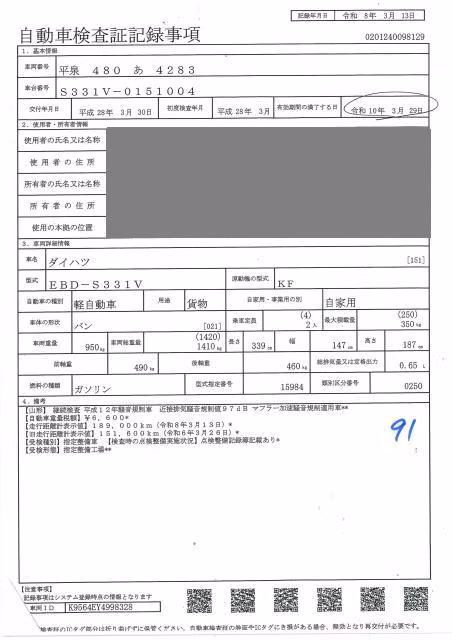 記録年月日 令和 8年 3月 13日
自動車検査証記録事項
0201240098129
1. 基本情報
車両番号 平泉 480 あ 4283
車台番号 S331V-0151004
交付年月日 平成 28年 3月 30日 初度検査年月 平成 28年 3月 有効期間の満了する日 令和 10年 3月 29日
2. 使用者・所有者情報
使用者の氏名又は名称
使用者の住所
所有者の氏名又は名称
所有者の住所
使用の本拠の位置
3. 車両詳細情報
車名 ダイハツ [151]
型式 EBD-S331V 原動機の型式 KF
自動車の種別 軽自動車 用途 貨物 自家用・事業用の別 自家用
車体の形状 バン [021] 乗車定員 (4) 2人 最大積載量 (250) 350kg
車両重量 950kg 車両総重量 (1420) 1410kg 長さ 339cm 幅 147cm 高さ 187cm
前軸重 490kg 後軸重 460kg 総排気量又は定格出力 0.65 L
燃料の種類 ガソリン 型式指定番号 15984 類別区分番号 0250
4. 備考
【山形】 継続検査 平成12年騒音規制車 近接排気騒音規制値97dB マフラー加速騒音規制適用車**
【自動車重量税額】¥6,600*
【走行距離計表示値】189,000km(令和8年3月13日)*
【旧走行距離計表示値】151,600km(令和6年3月26日)*
【受検種別】指定整備車 【検査時の点検整備実施状況】点検整備記録簿記載あり*
【受検形態】指定整備工場**
91
【注意事項】
記録事項はシステム登録時点の情報となります
車両ID K9564EY4998328
検査証のICタグ部分は折り曲げずに保管ください。自動車検査証の券面やICタグにき損がある場合、無効となり再交付が必要です。